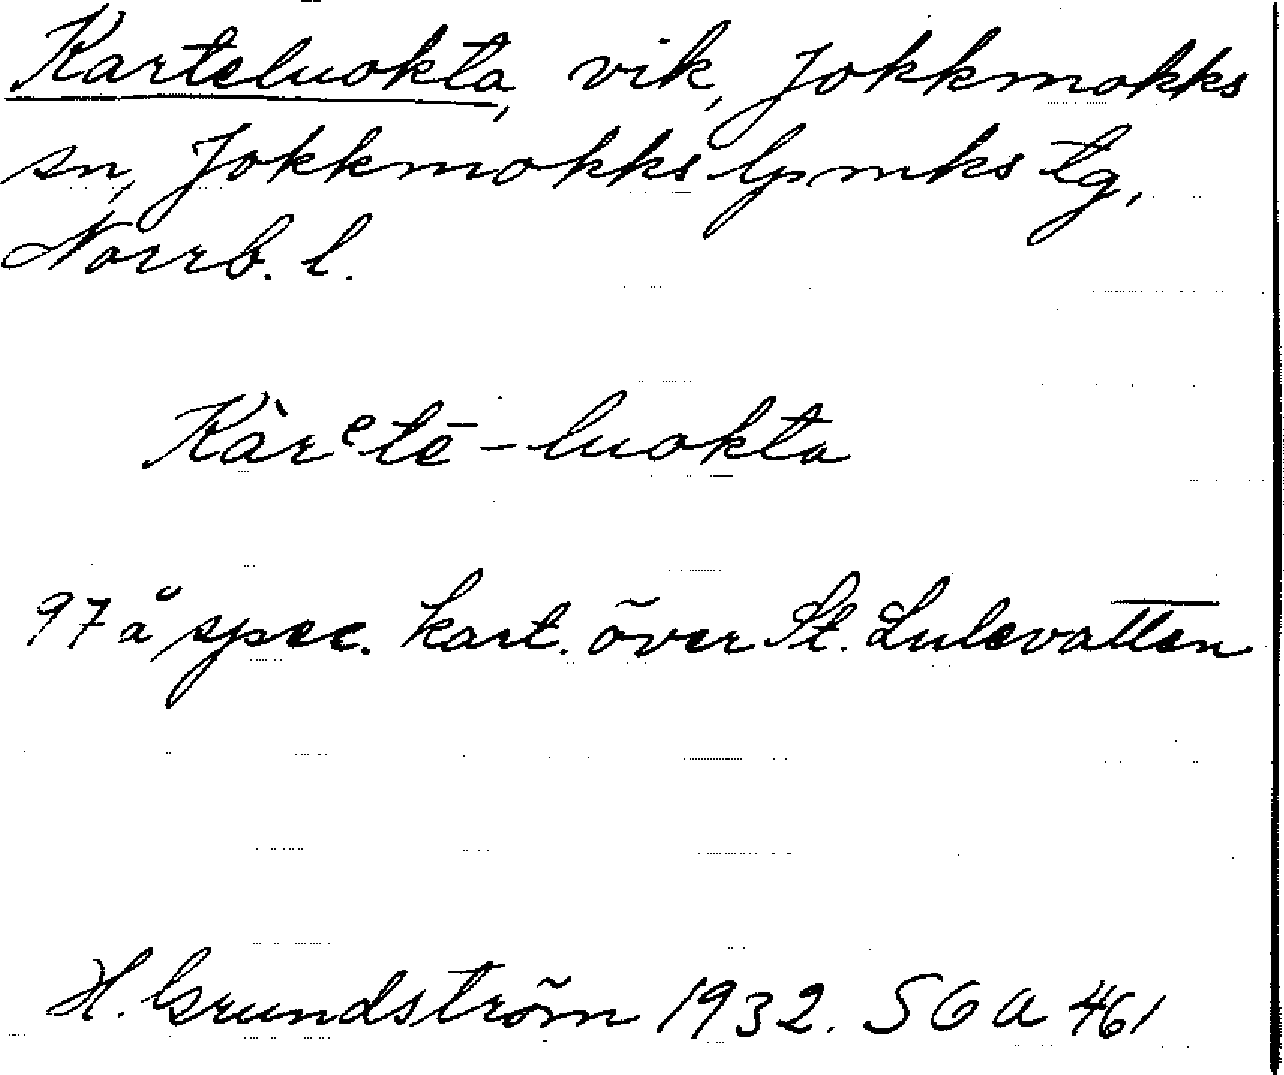 Karteluokta, vik, Jokkmokks
sn, Jokkmokks lpmks tg,
Norrb. l.
Kàrᵉtē-luokta
97 å spec. kart. över St. Lulevatten
H. Grundström 1932. SOA 461